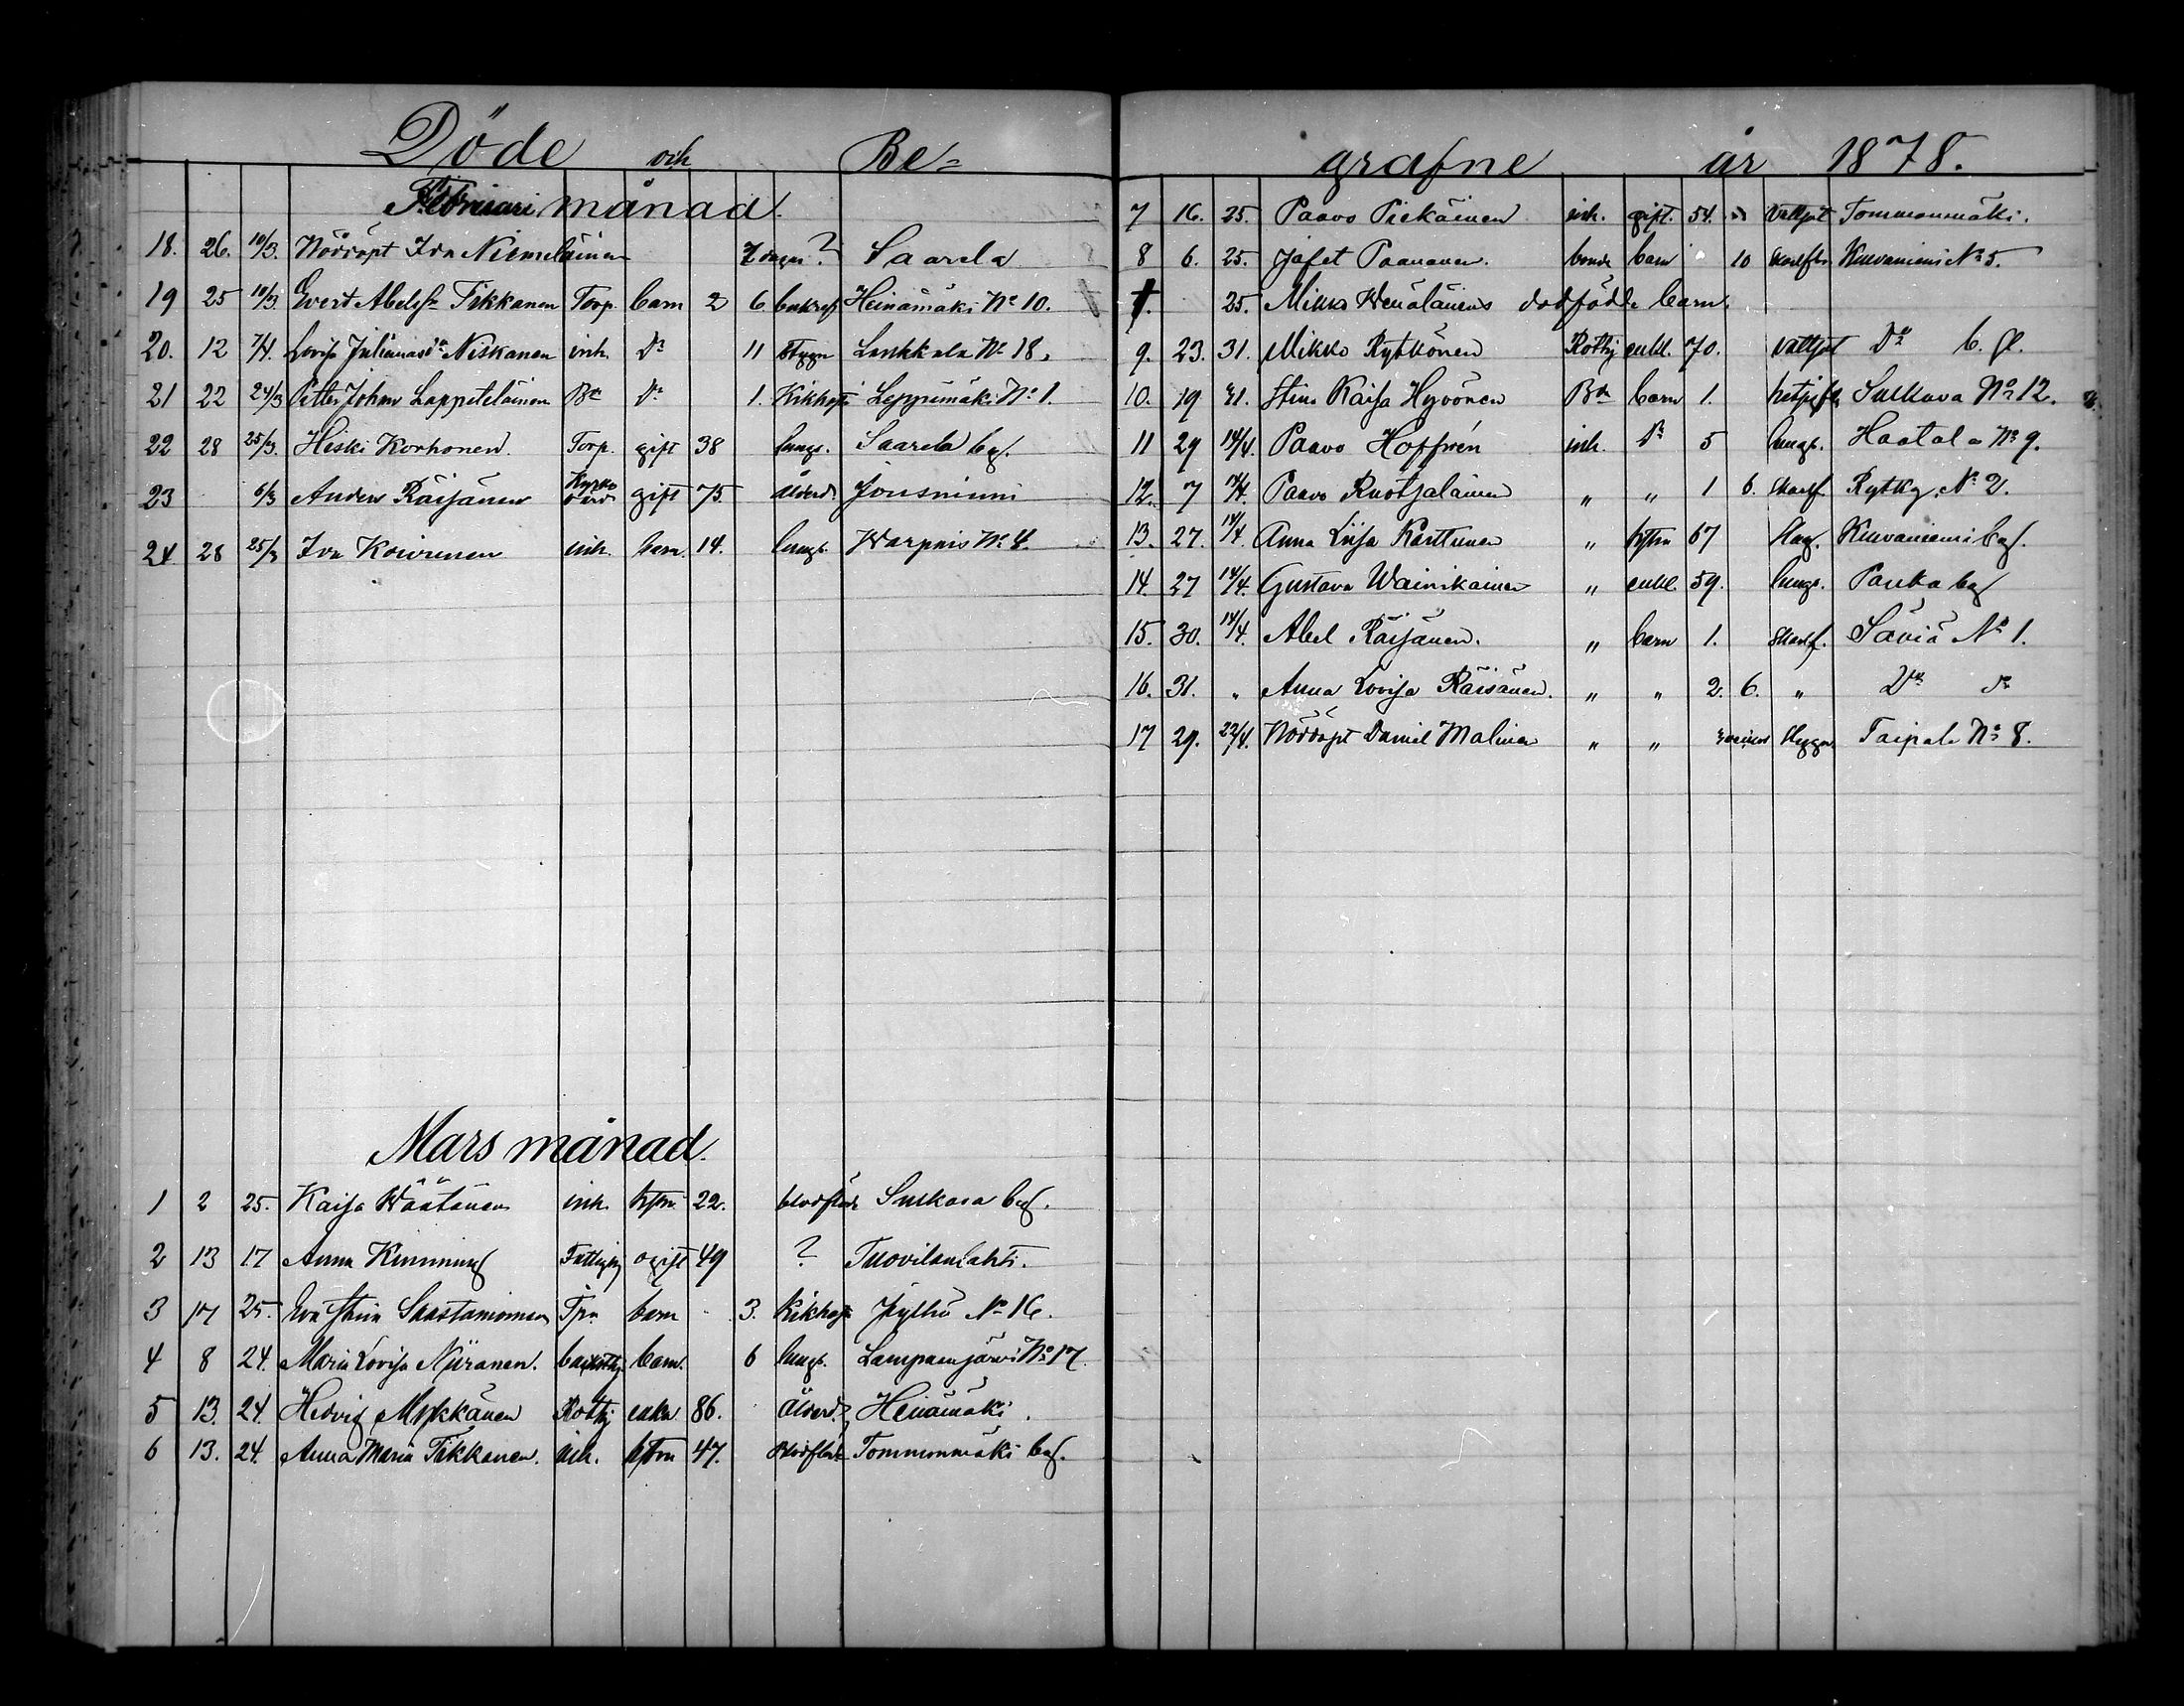 Döde och Be=
Februari månad.
18. 26. 10/3. Nöddöpt Ida Niemeläinen 7 dagar ? Saarela
19 25 10/3. Evert Abelsn Tikkanen Torp. barn 2 6 Heinämäki No 10.
20. 12 7/4. Lovisa Niskanen inh. Do 11 Stygn Laukkala No 18.
21 22 24/3 Petter Johan Lappeteläinen Bn Do 1. Kikhosta Leppämäki No 1.
22 28 25/3. Hiski Korhonen. Torp. gift 38 lungs. Saarela bef.
23 6/3 Anders Räisänen Kyrko gift 75 ålderd. Jousniemi
24 28 25/3 Ida Koivunen inh. barn. 14. lungs. Warpais No 4.
Mars månad.
1 2 25. Kaisa Wäätänen inh. hstru 22. blodflöde Sulkava bef.
2 13 17 Anna Kinnung Fattighj ogift 49 ? Tuovilanlahti.
3 17 25. Eva Stina Saastamoinen Tpr. barn 3. Kikhosta Jylhä No 16.
4 8 24. Maria Lovisa Niiranen. barn. 6 lungs. Lampaanjärvi No 17.
5 13. 24. Hedvig Mykkänen Rothj enka 86. Ålderd. Heinämäki.
6 13. 24. Anna Maria Tikkanen. inh. hstru 47. Blodflöde Tommonmäki bef.
grafne år 1878.
7 16. 25. Paavo Piekäinen inh. gift. 54. Vattsot Tommonmäki.
8 6. 25. Jafet Paananen. bonde barn 10 skarlfbr Kuvaniemi No 5.
25. Mikko Wenäläinens dödfödde barn.
9. 23. 31. Mikko Rytkönen Rothj enkl. 70. Vattsot Do b. gl.
10. 19 31. Stina Kaisa Hyvönen Bn barn 1. Sulkava No 12.
11 29 14/4. Paavo Hoffrén inh. Do 5 lungs. Haatala No 9.
12. 7 14/4. Paavo Ruotsalainen " " 1 6. skarlf. Rytky. No 2.
13. 27. 14/4. Anna Liisa Karttunen " hstru 67 Slag. Kuvaniemi bef.
14. 27 14/4. Gustava Wainikainen " enkl. 59. lungs. Pauka bef
15. 30. 14/4. Abel Räisänen. " barn 1. Skarlf. Säviä No 1.
16. 31. " Anna Lovisa Räisänen. " " 2. 6. " Do do
17 29. 22/4. Nöddöpt Daniel Malinen " " Stygn. Taipale No 8.